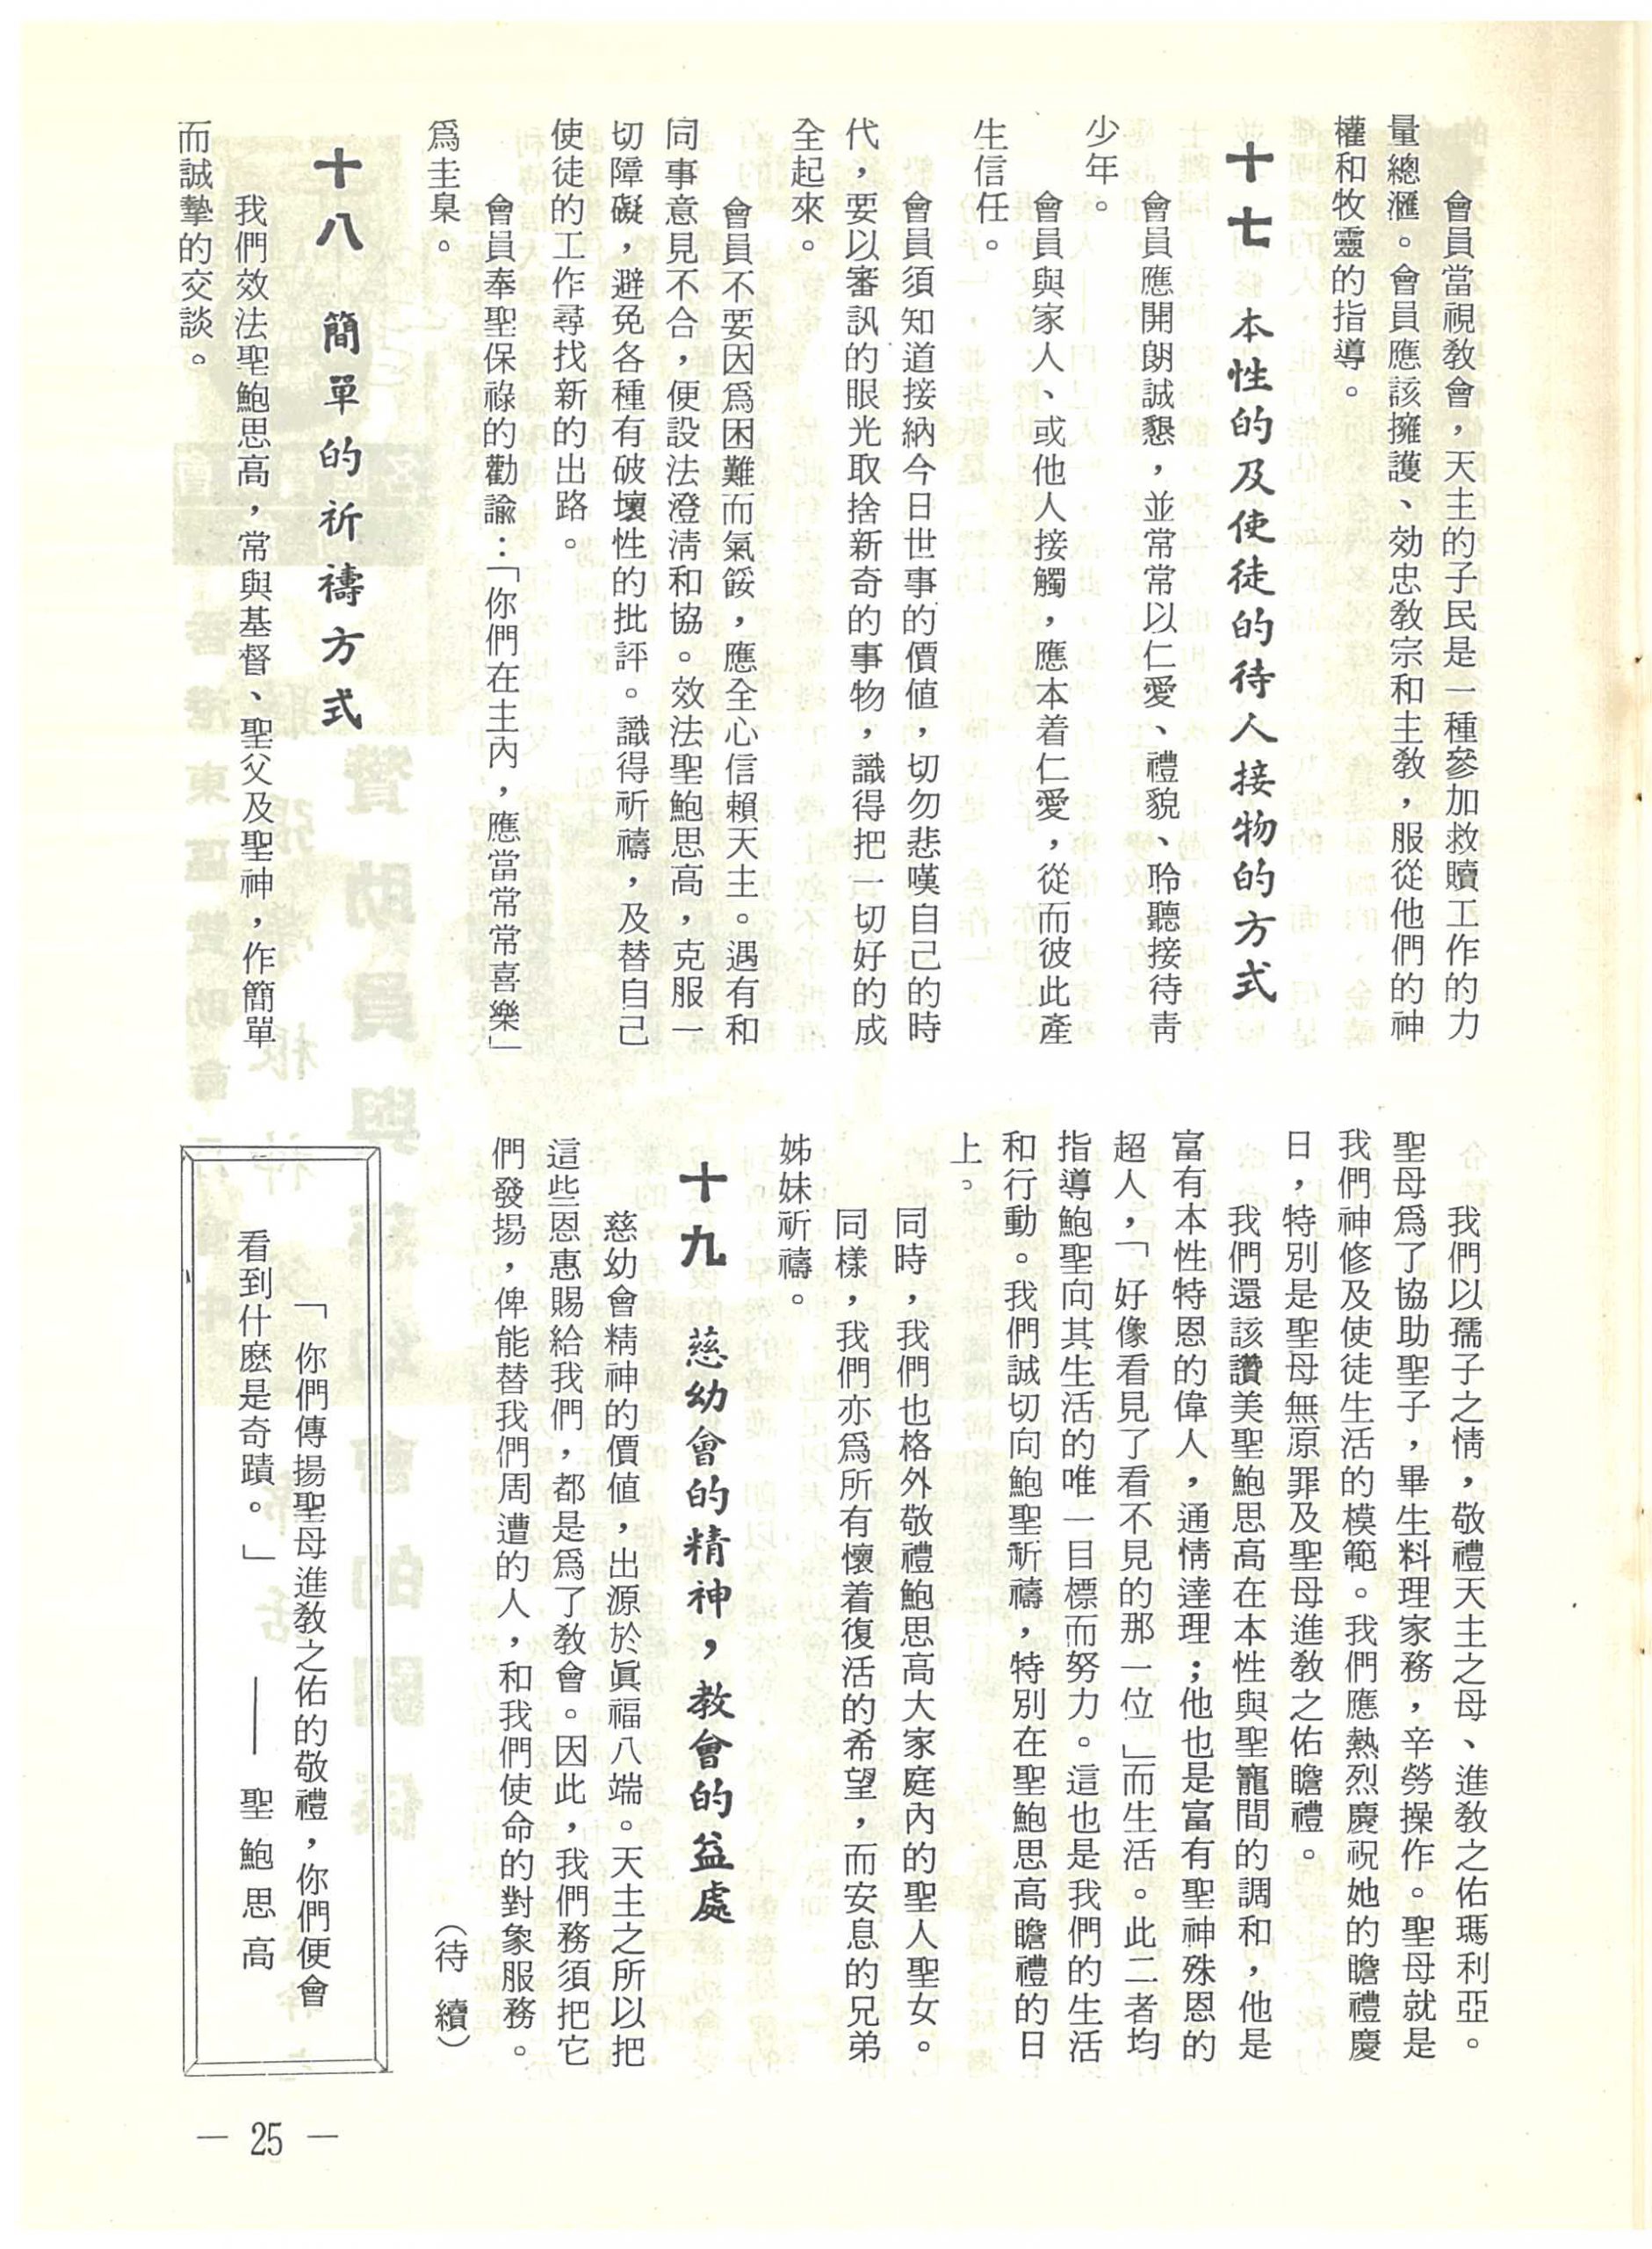 會員當視教會，天主的子民是一種參加救贖工作的力
量總滙。會員應該擁護、効忠教宗和主教，服從他們的神
權和牧靈的指導。
十七　本性的及使徒的待人接物的方式
會員應開朗誠懇，並常常以仁愛、禮貌、聆聽接待青
少年。
會員與家人、或他人接觸，應本着仁愛，從而彼此產
生信任。
會員須知道接納今日世事的價值，切勿悲嘆自己的時
代，要以審訊的眼光取捨新奇的事物，識得把一切好的成
全起來。
會員不要因爲困難而氣餒，應全心信賴天主。遇有和
同事意見不合，便設法澄清和協。效法聖鮑思高，克服一
切障礙，避免各種有破壞性的批評。識得祈禱，及替自己
使徒的工作尋找新的出路。
會員奉聖保祿的勸諭：「你們在主內，應當常常喜樂」
爲圭臬。
十八　簡單的祈禱方式
我們效法聖鮑思高，常與基督、聖父及聖神，作簡單
而誠摯的交談。
我們以孺子之情，敬禮天主之母、進教之佑瑪利亞。
聖母爲了協助聖子，畢生料理家務，辛勞操作。聖母就是
我們神修及使徒生活的模範。我們應熱烈慶祝她的瞻禮慶
日，特別是聖母無原罪及聖母進教之佑瞻禮。
我們還該讚美聖鮑思高在本性與聖寵間的調和，他是
富有本性特恩的偉人，通情達理；他也是富有聖神殊恩的
超人，「好像看見了看不見的那一位」而生活。此二者均
指導鮑聖向其生活的唯一目標而努力。這也是我們的生活
和行動。我們誠切向鮑聖祈禱，特別在聖鮑思高瞻禮的日
上。
同時，我們也格外敬禮鮑思高大家庭內的聖人聖女。
同樣，我們亦爲所有懷着復活的希望，而安息的兄弟
姊妹祈禱。
十九　慈幼會的精神，教會的益處
慈幼會精神的價值，出源於眞福八端。天主之所以把
這些恩惠賜給我們，都是爲了教會。因此，我們務須把它
們發揚，俾能替我們周遭的人，和我們使命的對象服務。
（待續）
「你們傳揚聖母進教之佑的敬禮，你們便會
看到什麽是奇蹟。」——聖鮑思高
— 25 —